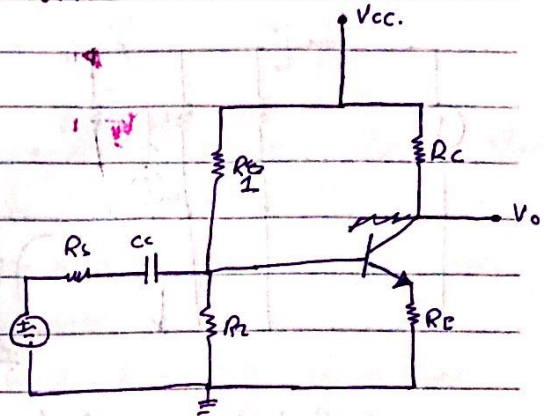 Vcc.
RB
1
Rc
Vo
Rs
Cc
R2
RE